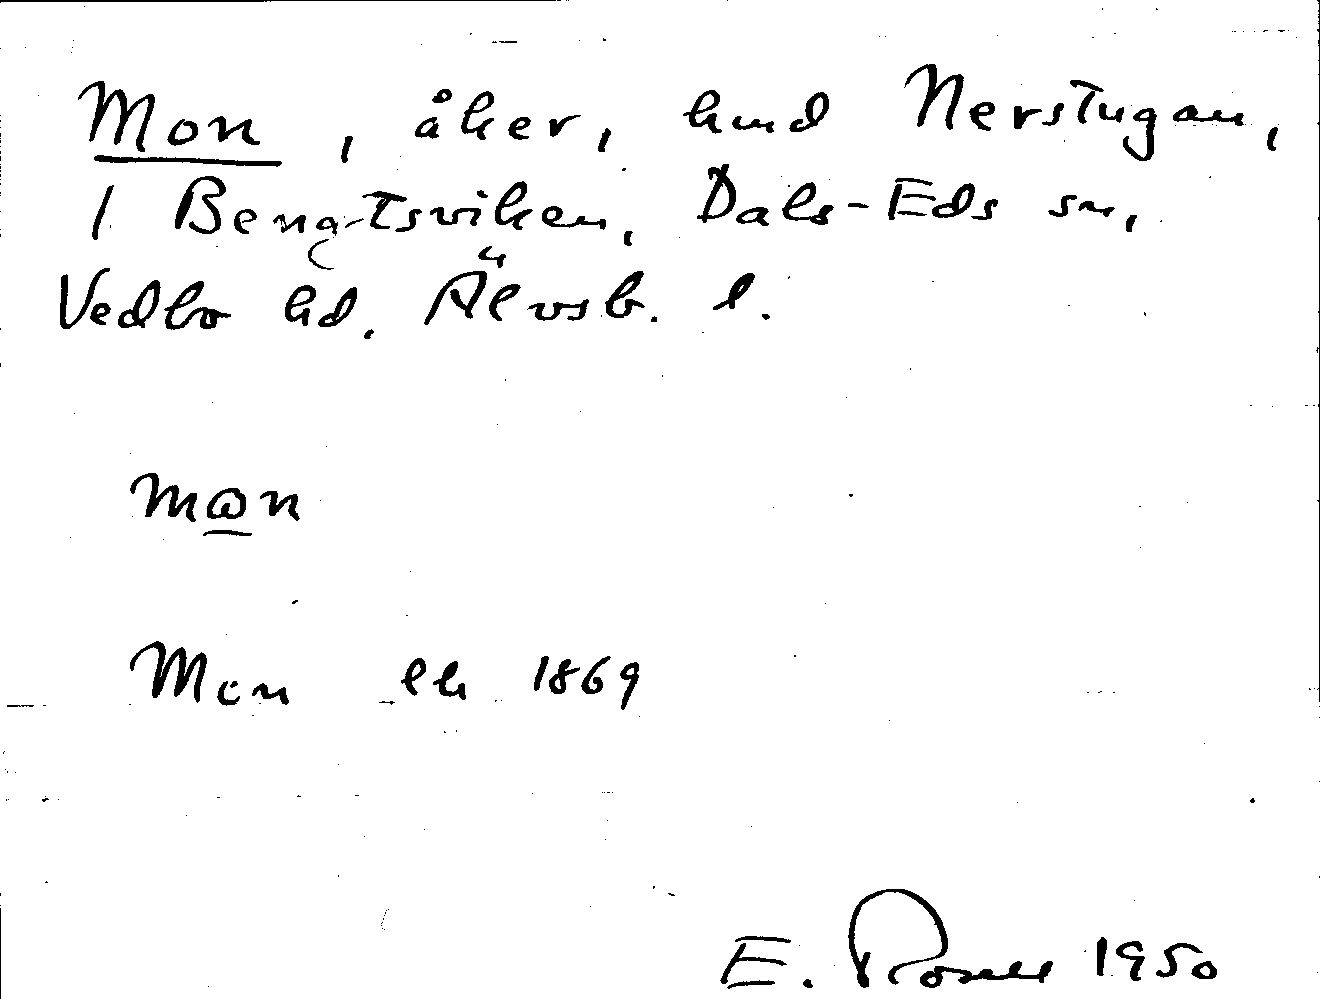 Mon, åker, hmd Nerstugan,
1 Bengtsviken, Dals-Eds sn,
Vedbo hd. Älvsb. l.
mωn
Mon lh 1869
E. Rosell 1950